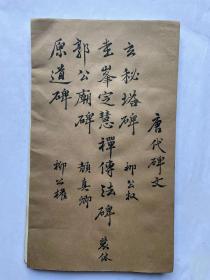 唐代碑文
玄秘塔碑 柳公权
圭峯定慧禪傳法碑 裴休
郭公廟碑 顏真卿
原道碑 柳公權